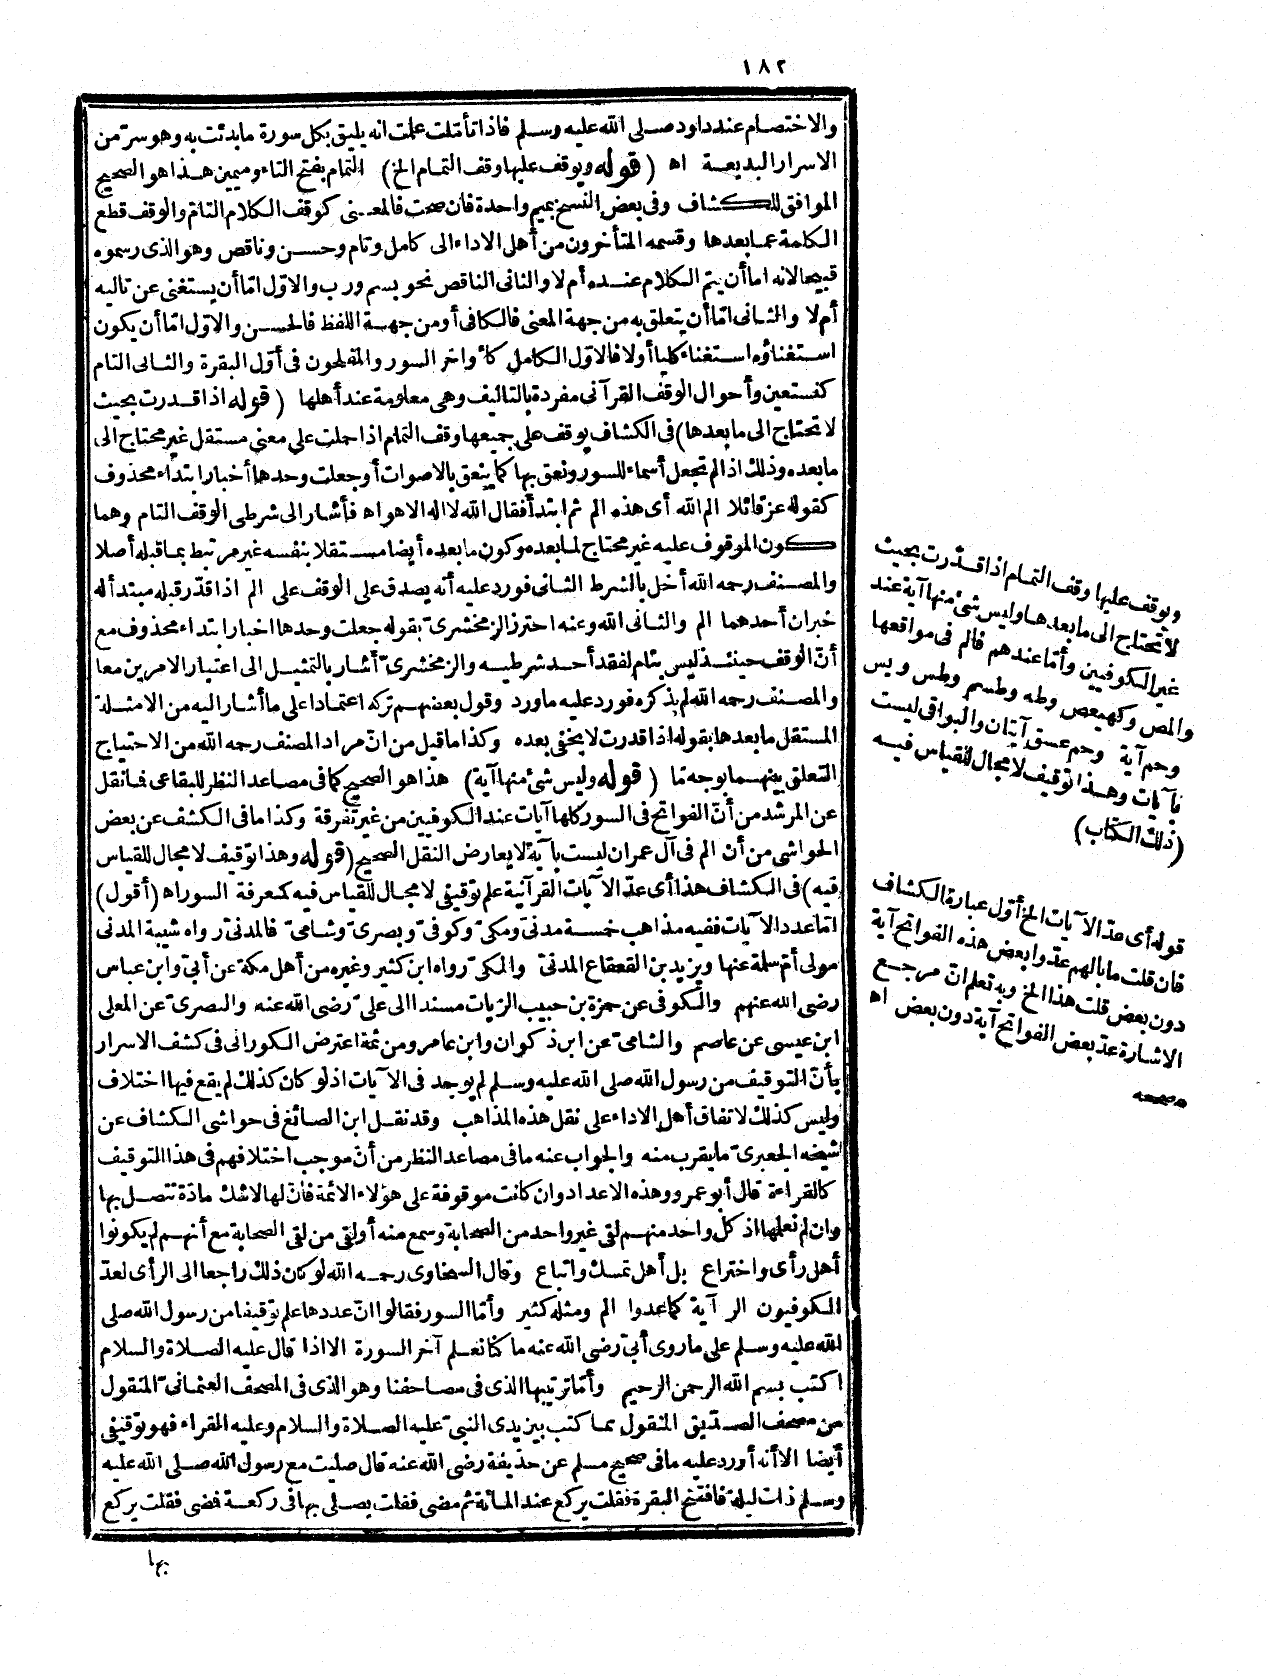 ١٨٢
والاختصام عند داود صلى الله عليه وسلم فاذا تأملت علمت انه يليق بكل سورة ما بدئت به وهو سرّ من
الاسرار البديعة اه (قوله ويوقف عليها وقف التمام الخ) التمام بفتح التاء وميمين هذا هو الصحيح
الموافق للكشاف وفى بعض النسخ بميم واحدة فان صحت فالمعنى كوقف الكلام التامّ والوقف قطع
الكلمة عما بعدها وقسمه المتأخرون من أهل الاداء الى كامل وتام وحسن وناقص وهو الذى رسموه
قبيحا لانه اما أن يتم الكلام عنده أم لا والثانى الناقص نحو بسم ورب والاوّل امّا أن يستغنى عن تاليه
أم لا والثانى امّا أن يتعلق به من جهة المعنى فالكافى أو من جهة اللفظ فالحسن والاوّل امّا أن يكون
استغناؤه استغناء كليا أولا فالاوّل الكامل كأواخر السور والمفلحون فى أوّل البقرة والثانى التام
كنستعين وأحوال الوقف القرآنى مفردة بالتاليف وهى معلومة عند أهلها (قوله اذا قدرت بحيث
لا تحتاج الى ما بعدها) فى الكشاف يوقف على جميعها وقف التمام اذا حملت على معنى مستقل غير محتاج الى
ما بعده وذلك اذا لم تجعل أسماء للسور ونعق بها كما ينعق بالاصوات أو جعلت وحدها أخبار ابتداء محذوف
كقوله عز قائلا الم الله أى هذه الم ثم ابتدأ فقال الله لا اله الا هو اه فأشار الى شرطى الوقف التام وهما
كون الموقوف عليه غير محتاج لما بعده وكون ما بعده أيضا مستقلا بنفسه غير مرتبط بما قبله أصلا
والمصنف رحمه الله أخل بالشرط الثانى فورد عليه أنه يصدق على الوقف على الم اذا قدّر قبله مبتدأ له
خبران أحدهما الم والثانى الله وعنه احترز الزمخشرى بقوله جعلت وحدها اخبار ابتداء محذوف مع
أنّ الوقف حينئذ ليس بتام لفقد أحد شرطيه والزمخشرى أشار بالتمثيل الى اعتبار الامرين معا
والمصنف رحمه الله لم يذكره فورد عليه ما ورد وقول بعضهم تركه اعتمادا على ما أشار اليه من الامثلة
المستقل ما بعدها بقوله اذا قدرت لا يخفى بعده وكذا ما قيل من انّ مراد المصنف رحمه الله من الاحتياج
التعلق بينهما بوجه مّا (قوله وليس شئ منها آية) هذا هو الصحيح كما فى مصاعد النظر للبقاعى فما نقل
عن المرشد من أنّ الفواتح فى السور كلها آيات عند الكوفيين من غير تفرقة وكذا ما فى الكشف عن بعض
الحواشى من أن الم فى آل عمران ليست بآية لا يعارض النقل الصحيح (قوله وهذا توقيف لا مجال للقياس
فيه) فى الكشاف هذا أى عدّ الآيات القرآنية علم توقيفى لا مجال للقياس فيه كمعرفة السور اه (أقول)
امّا عدد الآيات ففيه مذاهب خمسة مدنىّ ومكىّ وكوفىّ وبصرىّ وشامىّ فالمدنىّ رواه شيبة المدنى
مولى أمّ سلمة عنها ويزيد بن القعقاع المدنىّ والمكىّ رواه ابن كثير وغيره من أهل مكة عن أبىّ وابن عباس
رضى الله عنهم والكوفى عن حمزة بن حبيب الزيات مسندا الى علىّ رضى الله عنه والبصرىّ عن المعلى
ابن عيسى عن عاصم والشامىّ عن ابن ذكوان وابن عامر ومن ثمة اعترض الكورانى فى كشف الاسرار
بأنّ التوقيف من رسول الله صلى الله عليه وسلم لم يوجد فى الآيات اذ لو كان كذلك لم يقع فيها اختلاف
وليس كذلك لاتفاق أهل الاداء على نقل هذه المذاهب وقد نقل ابن الصائغ فى حواشى الكشاف عن
شيخه الجعبرىّ ما يقرب منه والجواب عنه ما فى مصاعد النظر من أنّ موجب اختلافهم فى هذا التوقيف
كالقراءة قال أبو عمرو وهذه الاعداد وان كانت موقوفة على هؤلاء الائمة فانّ لها لاشك مادّة تتصل بها
وان لم نعلمها اذ كل واحد منهم لقى غير واحد من الصحابة وسمع منه أو لقى من لقى الصحابة مع أنهم لم يكونوا
أهل رأى واختراع بل أهل تمسك واتباع وقال السخاوى رحمه الله لو كان ذلك راجعا الى الرأى لعدّ
الكوفيون الر آية كما عدوا الم ومثله كثير وأمّا السور فقالوا انّ عددها علم توقيفا من رسول الله صلى
الله عليه وسلم على ما روى أبىّ رضى الله عنه ما كنا نعلم آخر السورة الا اذا قال عليه الصلاة والسلام
اكتب بسم الله الرحمن الرحيم وأمّا ترتيبها الذى فى مصاحفنا وهو الذى فى المصحف العثمانىّ المنقول
من مصحف الصدّيق المنقول مما كتب بين يدى النبىّ عليه الصلاة والسلام وعليه القراء فهو توقيفى
أيضا الا أنه أورد عليه ما فى صحيح مسلم عن حذيفة رضى الله عنه قال صليت مع رسول الله صلى الله عليه
وسلم ذات ليلة فافتتح البقرة فقلت يركع عند المائة ثم مضى فقلت يصلى بها فى ركعة فمضى فقلت يركع
بها
ويوقف عليها وقف التمام اذا قدّرت بحيث
لا تحتاج الى ما بعدها وليس شئ منها آية عند
غير الكوفيين وأمّا عندهم فالم فى مواقعها
والمص وكهيعص وطه وطسم وطس ويس
وحم آية وحم عسق آيتان والبواقى ليست
بآيات وهذا توقيف لا مجال للقياس فيه
(ذلك الكتاب)
قوله أى عدّ الآيات الخ أقول عبارة الكشاف
فان قلت ما بالهم عدّوا بعض هذه الفواتح آية
دون بعض قلت هذا الخ وبه تعلم انّ مرجع
الاشارة عدّ بعض الفواتح آية دون بعض اه
مصححه